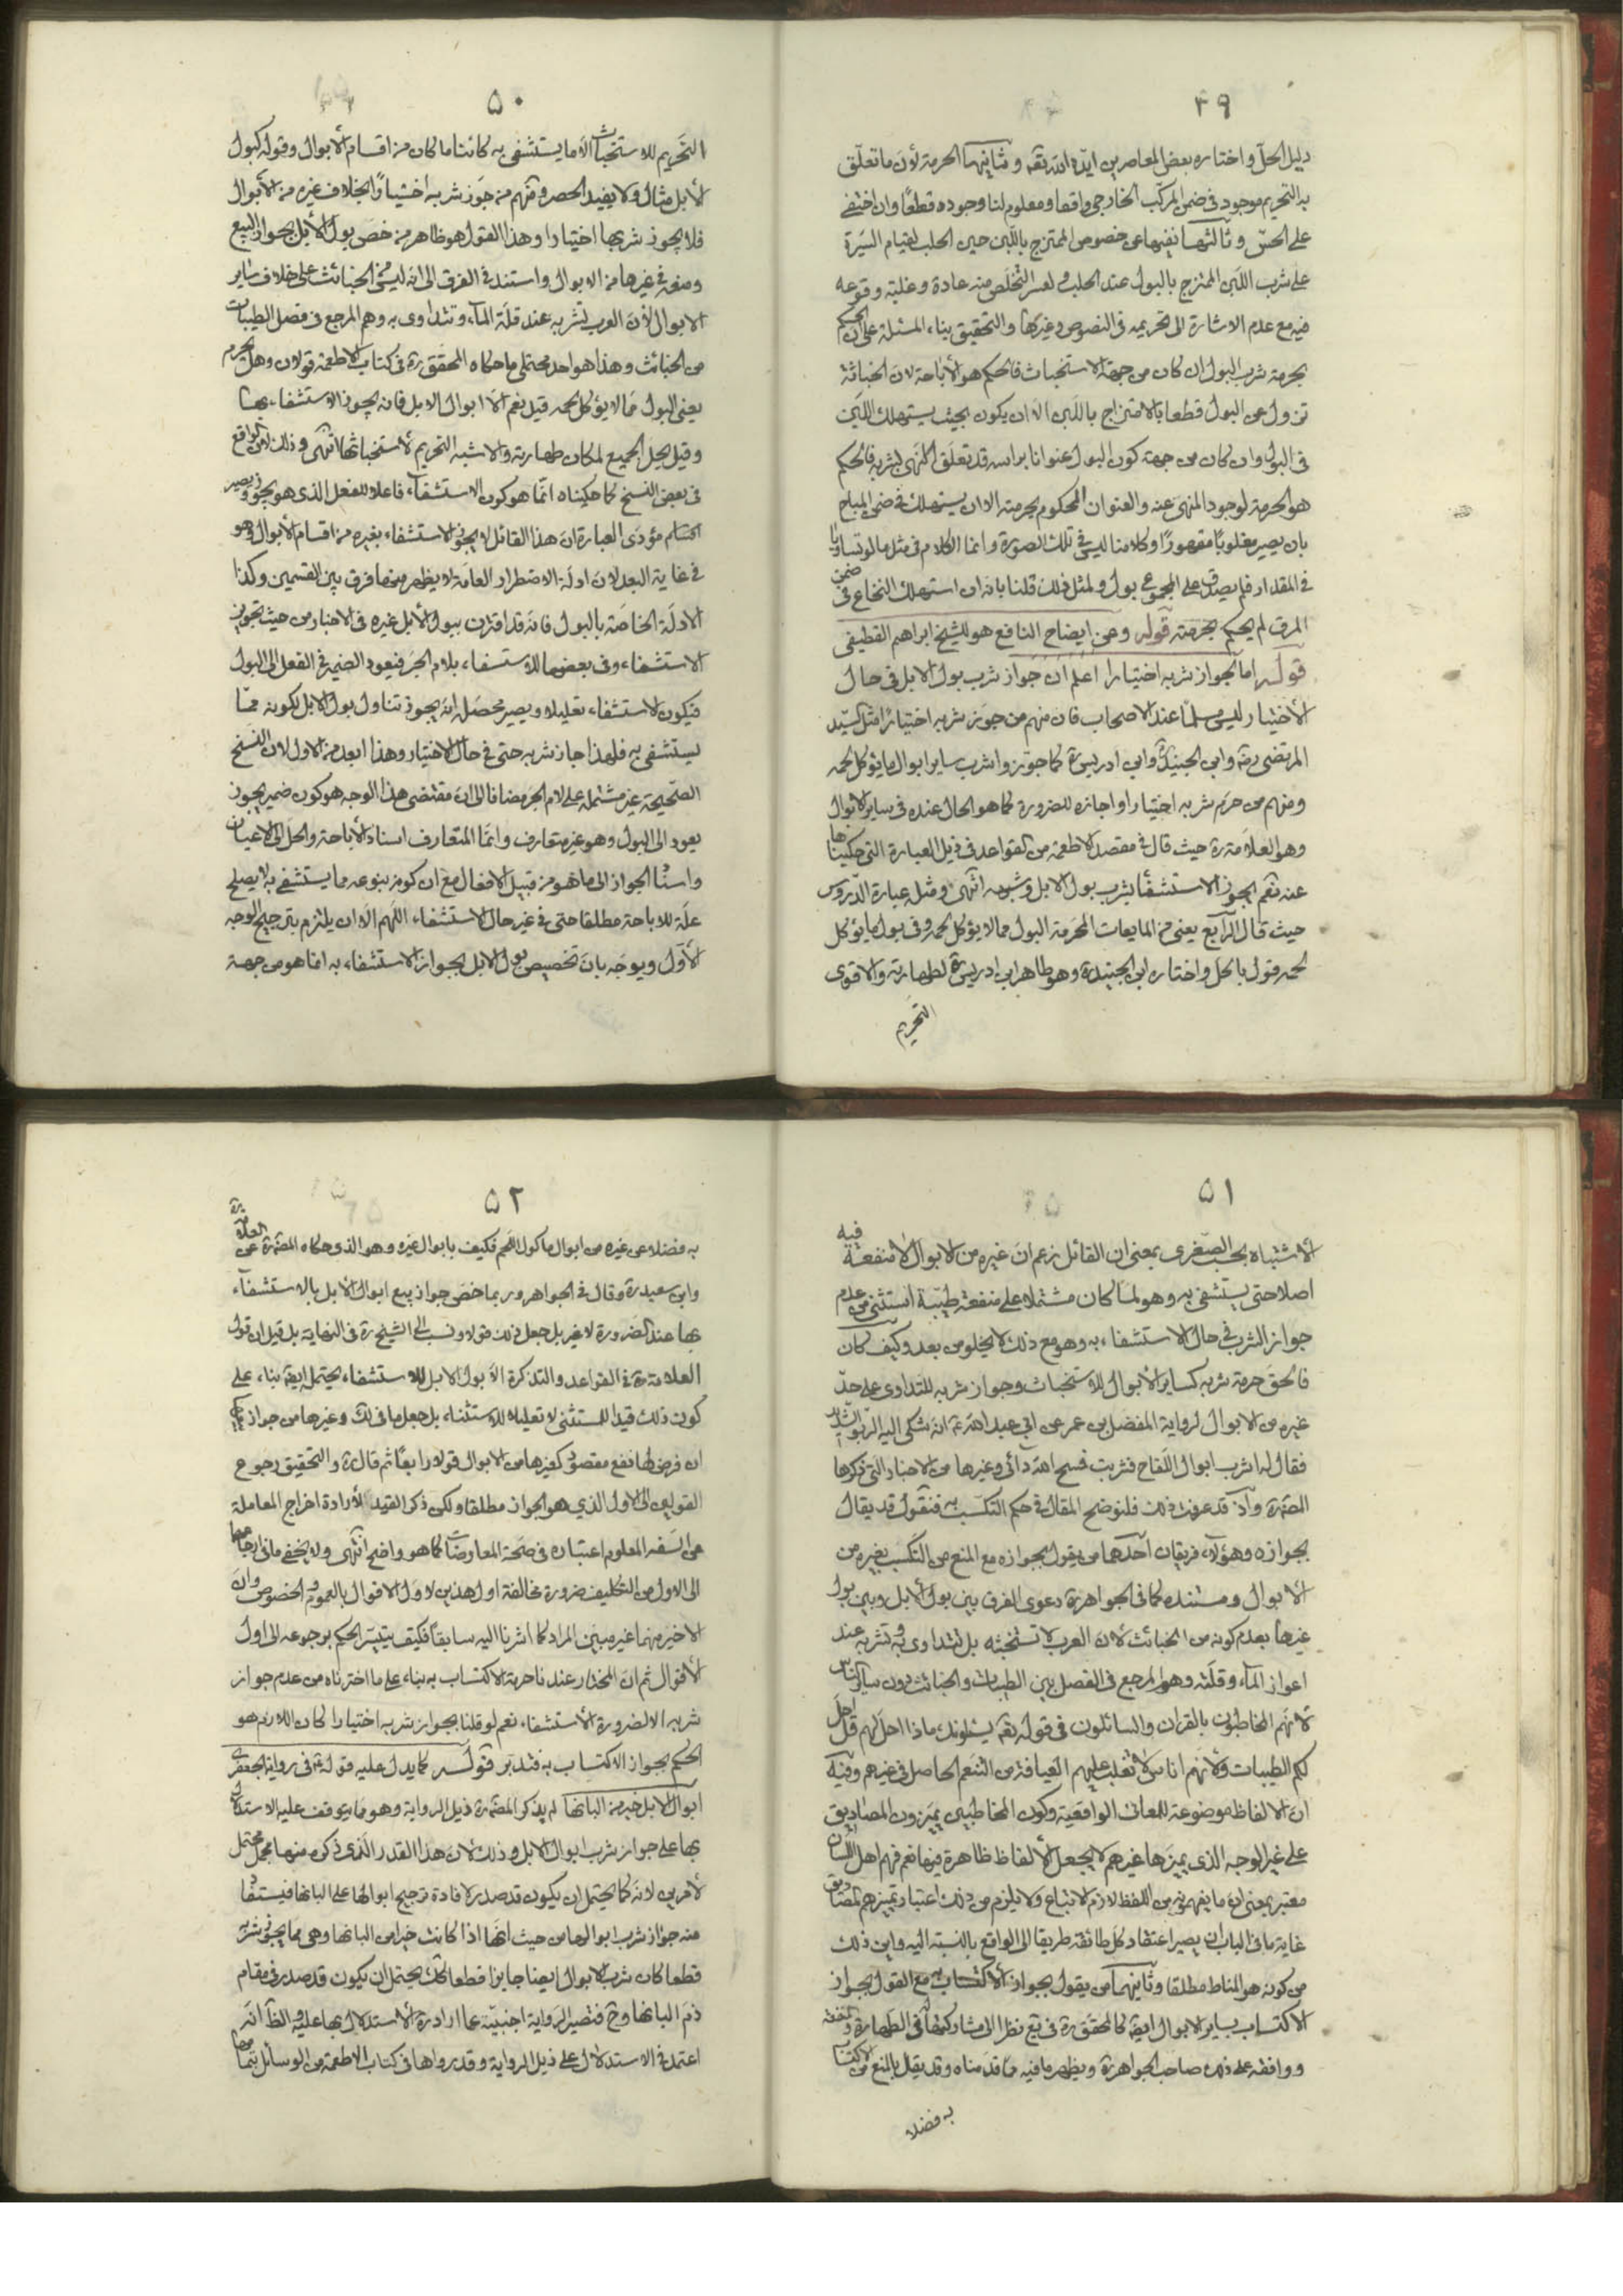 ۴۹
دليل الحلّ و اختاره بعض المعاصرين ايّده اللّه تعه و ثانيهما الحرمة لأنّ ما تعلّق
به التحريم موجود فى ضمن المركّب الخارجى واقعا و معلوم لنا وجوده قطعًا و ان اختفى
على الحسّ و ثالثها نفيها عن خصوص الممتزج باللّبن حين الحلب لقيام السّيرة
على شرب اللّبن الممتزج بالبول عند الحلب و لعسر التخلّص منه عادة و غلبة وقوعه
فيه مع عدم الاشارة الى تحريمه فى النصوص و غيرها و التحقيق بناء المسئلة على انّ الحكم
بحرمة شرب البول ان كان من جهة الاستخباث فالحكم هو الأباحة لانّ الخباثة
تزول عن البول قطعا بالامتزاج باللّبن الا ان يكون بحيث يستهلك اللّبن
فى البول و ان كان من جهة كون البول عنوانا براسه قد تعلّق النّهى بشربه فالحكم
هو الحرمة لوجود المنهى عنه و العنوان المحكوم بحرمته الا ان يستهلك فى ضمن المباح
بان يصير مغلوبًا مقهورًا و كلامنا ليس فى تلك الصورة و انما الكلام فى مثل ما لو تساويا
فى المقدار فلم يصدق على المجموع بول و لمثل ذلك قلنا بانه ان استهلك النخاع فى ضمن
المرق لم يحكم بحرمته قوله و عن ايضاح النافع هو للشيخ ابراهيم القطيفى
قوله امّا لجواز شربه اختيارا اعلم انّ جواز شرب بول الابل فى حال
الأختيار ليس مسلّمًا عند الاصحاب فان منهم من جوّز شربه اختيارًا مثل السّيد
المرتضى ره و ابن الجنيد ره و ابن ادريس ره كما جوّزوا شرب ساير ابوال ما يؤكل لحمه
و منهم من حرّم شربه اختيارا و اجازه للضرورة كما هو الحال عنده فى ساير الابوال
و هو العلّامة ره حيث قال فى مقصد الاطعمة من القواعد فى ذيل العبارة التى حكيناها
عنه نعم يجوز الاستشفاء بشرب بول الابل و شبهه انتهى و مثله عبارة الدّروس
حيث قال الرّابع يعنى من المايعات المحرّمة البول مما لا يؤكل لحمه و فى بول ما يؤكل
لحمه قول بالحل و اختاره ابن الجنيد ره و هو ظاهر ابن ادريس ره لطهارته و الاقوى
التحريم
۵۰
التّحريم للاستخباث الّا ما يستشفى به كائنا ما كان من اقسام الأبوال و قوله كبول
الأبل مثال و لا يفيد الحصر و منهم من جوّز شربه اختيارًا بخلاف غيره من الأبوال
فلا يجوز شربها اختيارا و هذا القول هو ظاهر من خصّ بول الأبل بجواز البيع
و منعه فى غيرها من الابوال و استند فى الفرق الى انّه ليس من الخبائث على خلاف ساير
الابوال لأنّ العرب تشربه عند قلّة المآء و تتداوى به و هم المرجع فى فصل الطيبات
من الخبائث و هذا هو احد محتملى ما حكاه المحقق ره فى كتاب الاطعمة قولان و هل يحرم
يعنى البول مما لا يؤكل لحمه قيل نعم الّا ابوال الابل فانه يجوز الاستشفاء بها
و قيل يحل الجميع لمكان طهارته و الاشبه التحريم لاستخباثها انتهى و ذلك لانّ الواقع
فى بعض النّسخ كما حكيناه انّما هو كون الاستشفاء فاعلا للفعل الذى هو يجوز و يصير
مؤدّى العبارة ان هذا القائل لا يجوز الاستشفاء بغيره من اقسام الأبوال و هو
فى غاية البعد لانّ ادلّة الاضطرار العامّة لا يظهر منها فرق بين القسمين و كذا
الادلّة الخاصّة بالبول فانّه قد اقترن ببول الأبل غيره فى الاخبار من حيث تجويز
الاستشفاء و فى بعضها للاستشفاء بلام الجرّ فيعود الضمير فى الفعل الى البول
فيكون لاستشفاء تعليلا و يصير محصّله انّه يجوز تناول بول الابل لكونه ممّا
يستشفى به فلهذا جاز شربه حتى فى حال الاختيار و هذا ابعد من الاول لان النّسخ
الصّحيحة غير مشتملة على لام الجرّ مضافا الى انّ مقتضى هذا الوجه هو كون ضمير يجوز
يعود الى البول و هو غير متعارف و انّما المتعارف اسناد الأباحة و الحلّ الى الاعيان
و اسناد الجواز الى ما هو من قبيل الافعال مع ان كونه بنوعه مما يستشفى به لا يصلح
علّة للاباحة مطلقا حتى فى غير حال الاستشفاء اللّهم الّا ان يلتزم بترجيح الوجه
الأوّل و يوجّه بانّ تخصيص بول الابل بجواز الاستشفاء به انما هو من جهة
۵۱
الأشتباه بحسب الصّغرى بمعنى ان القائل زعم انّ غيره من الابوال لا منفعة فيه
اصلا حتى يستشفى به و هو لمّا كان مشتملا على منفعة طبّيّة استثنى من عدم
جواز الشرب فى حال الاستشفاء به و هو مع ذلك لا يخلو من بعد و كيف كان
فالحقّ حرمة شربه كساير الأبوال للاستخباث و جواز شربه للتداوى على حدّ
غيره من الابوال لرواية المفضل بن عمر عن ابى عبد اللّه ع انّه شكى اليه الرّبو الشّديد
فقال له اشرب ابوال اللّقاح فشربت فمسح اللّه دائى و غيرها من الاخبار التى ذكرها
المصنّف ره و اذ قد عرفت ذلك فلنوضح المقال فى حكم التكسّب به فنقول قد يقال
بجوازه و هؤلاء فريقان احدهما من يقول بجوازه مع المنع من التكسّب بغيره من
الأبوال و مستنده كما فى الجواهر ره دعوى الفرق بين بول الأبل و بين بول
غيرها بعدم كونه من الخبائث لانّ العرب لا تستخبثه بل تتداوى به و تشربه عند
اعواز المآء و قلّته و هو المرجع فى الفصل بين الطيبات و الخبائث دون سائر الناس
لأنّهم المخاطبون بالقران و السائلون فى قوله تعه يسئلونك ماذا احلّ لهم قل احلّ
لكم الطيبات و لأنهم اناس لا تغلب عليهم العيافة من التنعّم الحاصل فى غيرهم و فيه
انّ الالفاظ موضوعة للمعانى الواقعيّة و كون المخاطبين يميّزون المصاديق
على غير الوجه الذى يميزها غيرهم لا يجعل الألفاظ ظاهرة فيها نعم فهم اهل اللّسان
معتبر بمعنى انّ ما يفهمونه من اللّفظ لازم الاتباع و لا يلزم من ذلك اعتبار تميزهم المصاديق
غاية ما فى الباب ان يصير اعتقاد كلّ طائفة طريقا الى الواقع بالنّسبة اليه و اين ذلك
من كونه هو المناط مطلقا و ثانيهما من يقول بجواز الاكتساب به مع القول بجواز
الاكتساب بساير الابوال ايضه كالمحقّق ره فى يع نظرا الى مشاركتها فى الطهارة و المنفعة
و وافقه على ذلك صاحب الجواهر ره و يظهر ما فيه ممّا قدّمناه و قد يقال بالمنع من الاكتساب
به فضلا
۵۲
به فضلا عن غيره من ابوال ما كول اللّحم فكيف بابوال غيره و هو الذى حكاه المصنّف ره عن العلّامة ره
و ابن سعيد ره و قال فى الجواهر و ربما خصّ جواز بيع ابوال الأبل بالاستشفاء
بها عند الضرورة لا غير بل جعل ذلك قولا و نسب الى الشيخ ره فى النهاية بل قيل ان قول
العلّامة ره فى القواعد و التذكرة الّا بول الابل للاستشفاء يحتمل ايضه بناء على
كون ذلك قيدا للمستثنى لا تعليلا للاستثناء بل جعل ما فى لك و غيرها من جواز
ان فرض لها نفع مقصود كغيرها من الابوال قولا رابعًا ثم قال ره و التحقيق رجوع
القولين الى الاول الذى هو الجواز مطلقا و لكن ذكر القيد لأرادة اخراج المعاملة
عن السّفه المعلوم اعتباره فى صحّة المعاوضات كما هو واضح انتهى و لا يخفى ما فى ارجاعهما
الى الاول من التكليف ضرورة مخالفة اول هذين لاول الاقوال بالعموم و الخصوص و انّ
الاخير منهما غير مبيّن المراد كما اشرنا اليه سابقًا فكيف يتيسّر الحكم برجوعه الى اول
الأقوال ثم انّ المختار عندنا حرمة الاكتساب به بناء على ما اخترناه من عدم جواز
شربه الا لضرورة الأستشفاء نعم لو قلنا بجواز شربه اختيارا كان اللازم هو
الحكم بجواز الاكتساب به فتدبّر قوله كما يدل عليه قوله ع فى رواية الجعفرى
ابوال الابل خير من البانها لم يذكر المصنّف ره ذيل الرواية و هو مما يتوقف عليه الاستدلال
بها على جواز شرب ابوال الابل و ذلك لانّ هذا القدر الّذى ذكره منها مجمل محتمل
لأمرين لانّه كما يحتمل ان يكون قد صدر لافادة ترجيح ابوالها على البانها فيستفاد
منه جواز شرب ابوالها من حيث انّها اذا كانت خيرا من البانها و هى مما يجوز شربه
قطعا كان شرب الابوال ايضا جايزا قطعا كك يحتمل ان يكون قد صدر فى مقام
ذمّ البانها و ح فتصير الرّواية اجنبيّة عما اراده ره الاستدلال بها عليه و الظّ انّه
اعتمد فى الاستدلال على ذيل الرواية و قد رواها فى كتاب الاطعمة من الوسائل بتمامها